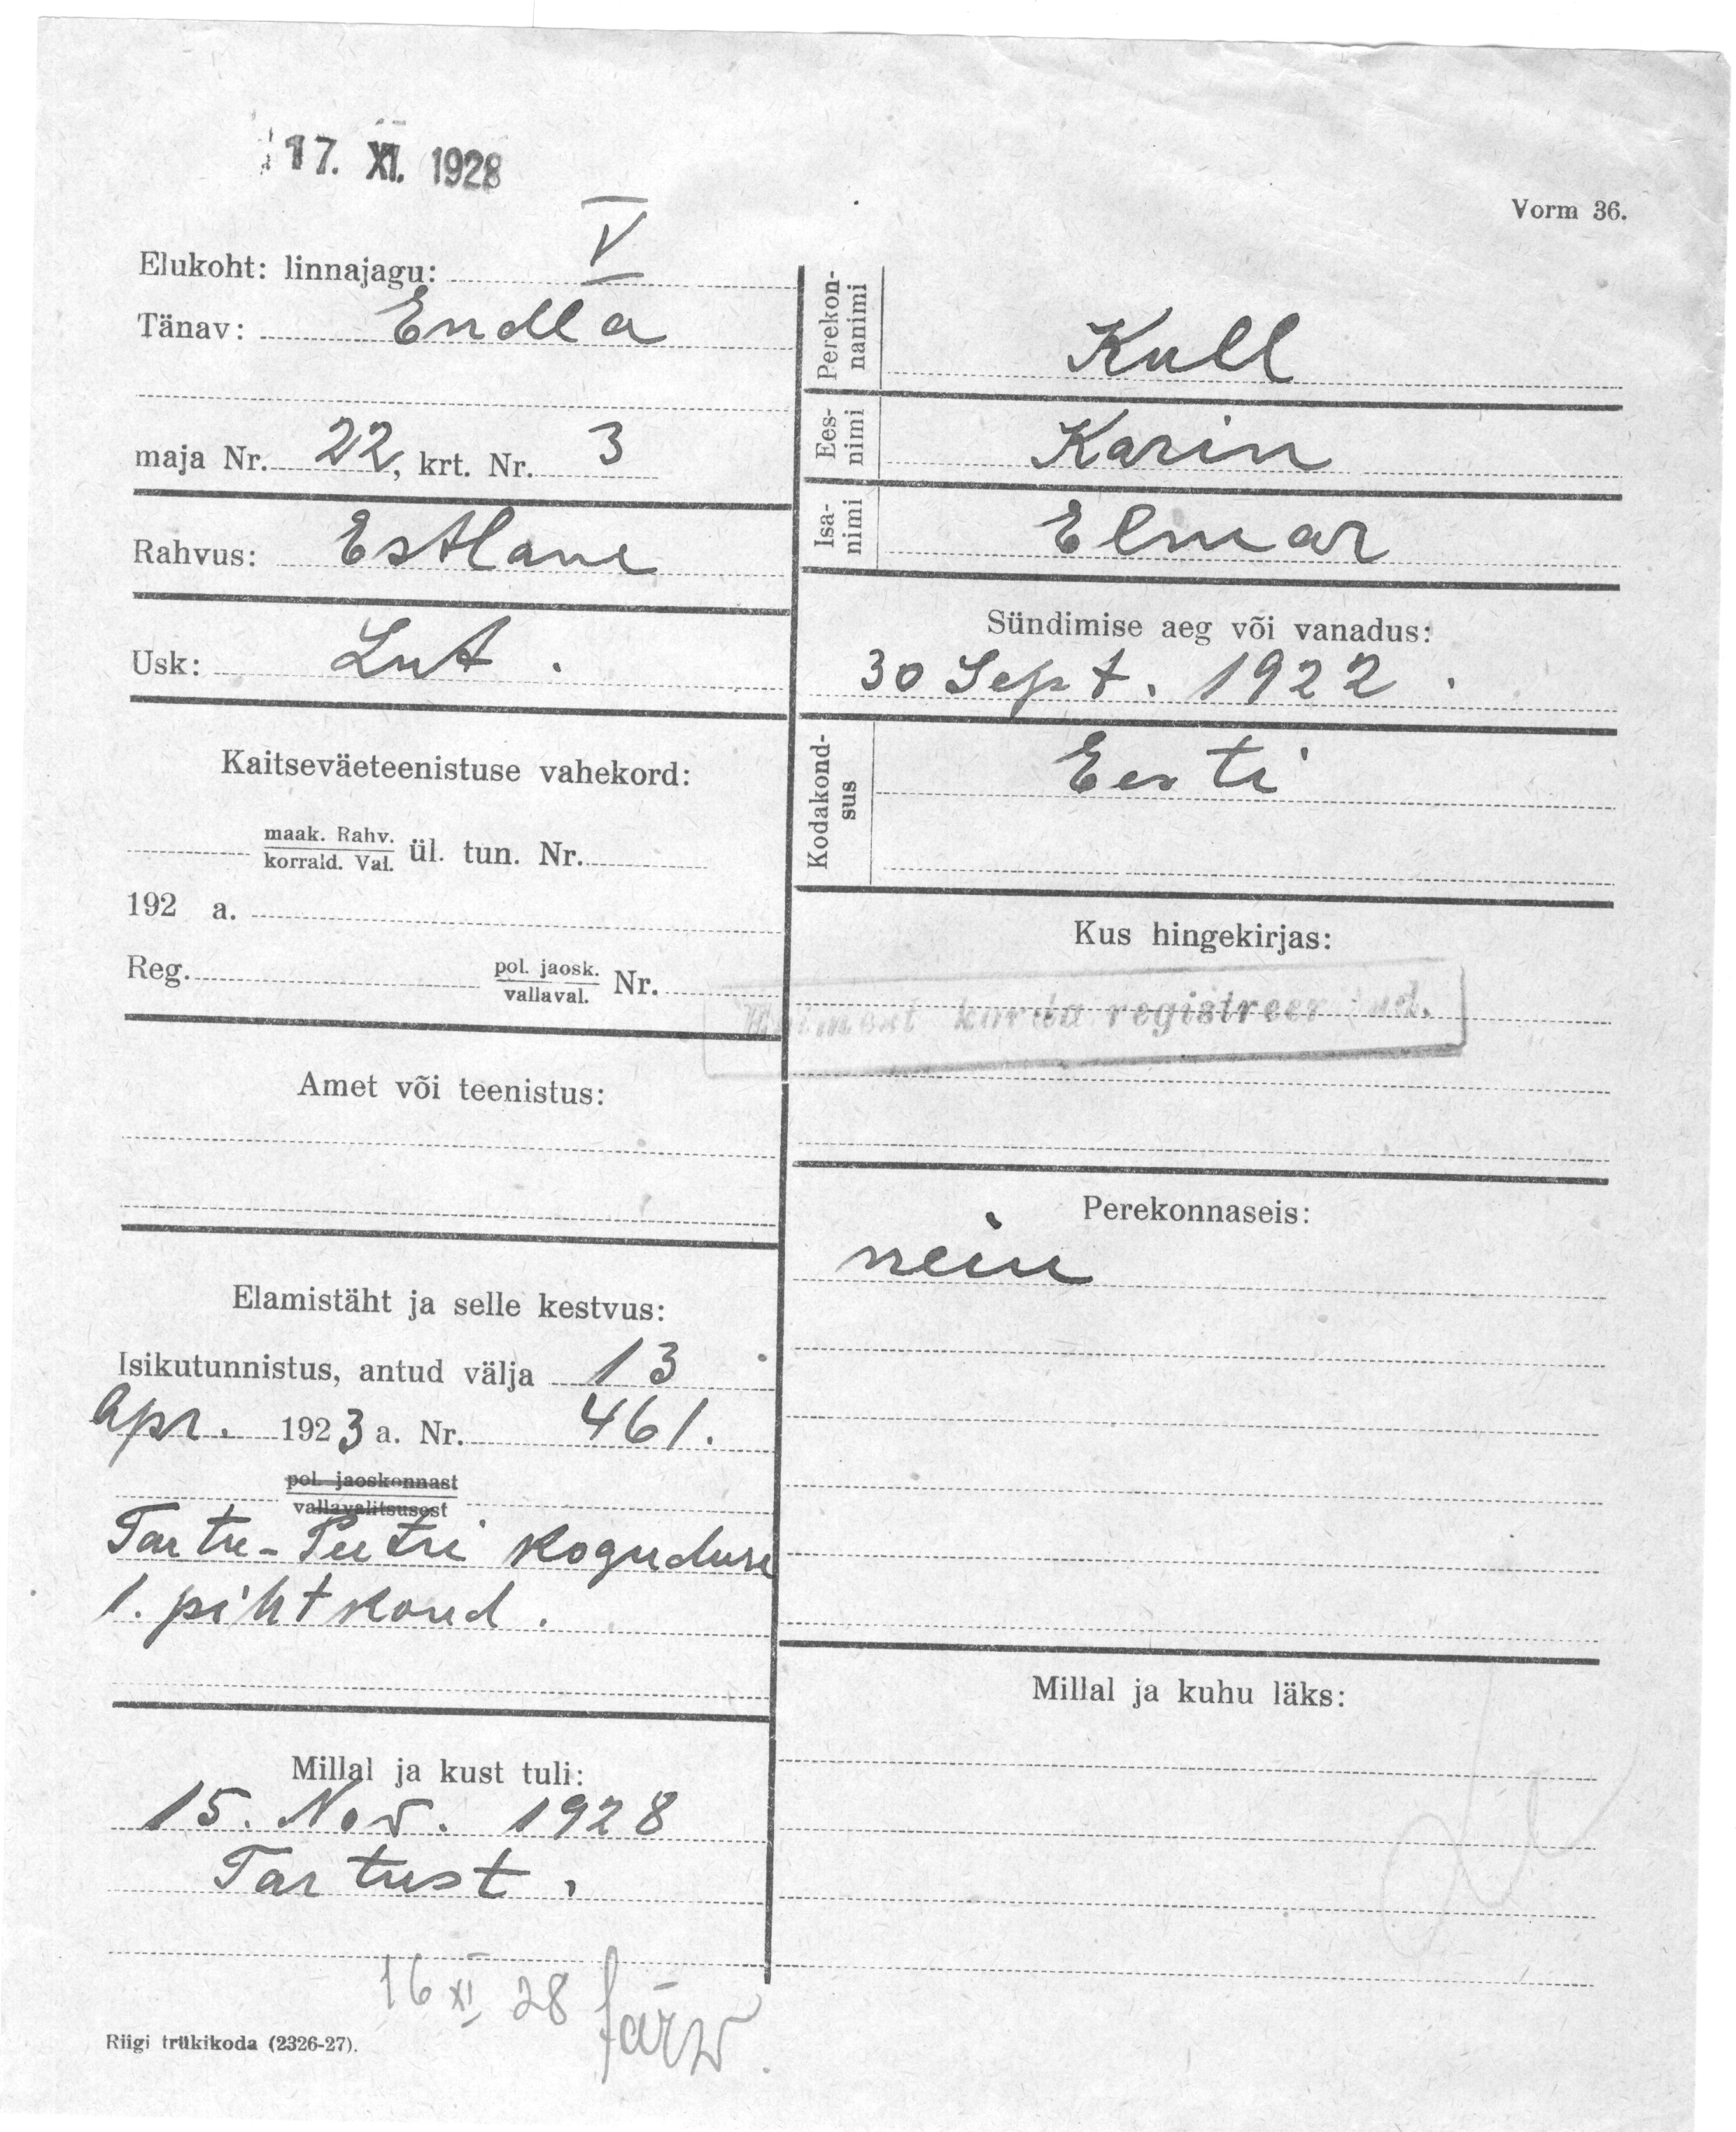 17. XI. 1928
Vorm 36.
Elukoht: linnajagu: V
Tänav: Endla
maja Nr. 22, krt. Nr. 3
Rahvus: Estlane
Usk: Lut.
Kaitseväeteenistuse vahekord:
maak. Rahv.
korrald. Val. ül. tun. Nr.
192 a.
Reg. pol. jaosk.
vallaval. Nr.
Amet või teenistus:
Elamistäht ja selle kestvus:
Isikutunnistus, antud välja 13
Apr. 1923 a. Nr. 461.
pol. jaoskonnast
vallavalitsusest
Tartu-Peetri koguduse
1. pihtkond.
Millal ja kust tuli:
15. Nov. 1928
Tartust.
16 XI 28 Järw.
Riigi trükikoda (2326-27).
Perekon-
nanimi Kull
Ees-
nimi Karin
Isa-
nimi Elmar
Sündimise aeg või vanadus:
30 Sept. 1922.
Kodakond-
sus Eesti
Kus hingekirjas:
korda registreeritud.
Perekonnaseis:
neiu
Millal ja kuhu läks: